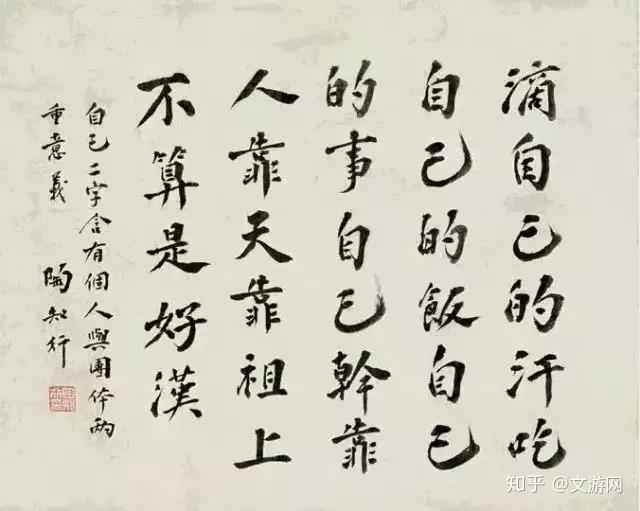 滴自己的汗吃
自己的飯自己
的事自己幹靠
人靠天靠祖上
不算是好漢
自己二字含有個人與團体兩
重意義 陶知行
知乎 @文游网